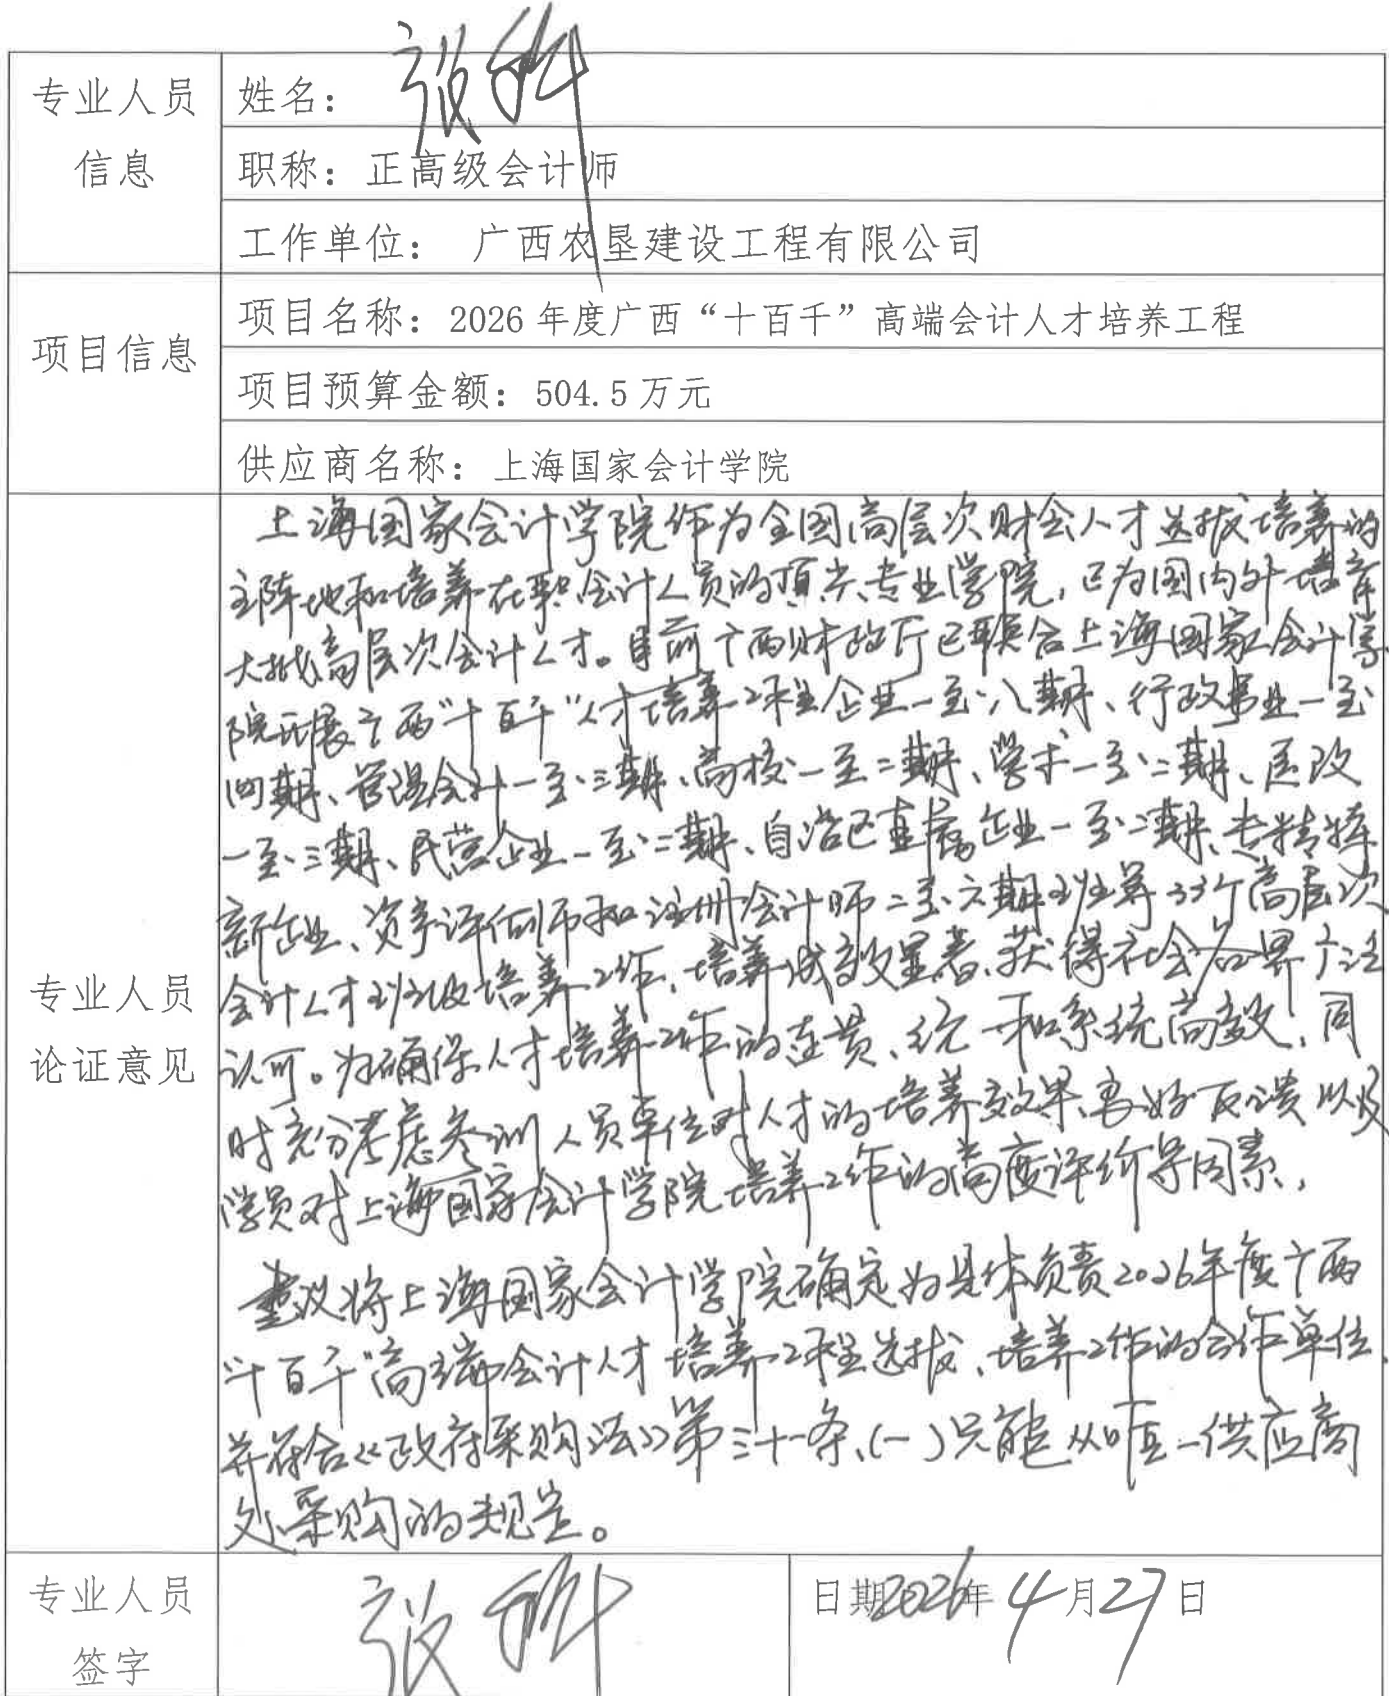 专业人员
信息
姓名：张科
职称：正高级会计师
工作单位： 广西农垦建设工程有限公司
项目信息
项目名称：2026年度广西“十百千”高端会计人才培养工程
项目预算金额：504.5万元
供应商名称：上海国家会计学院
专业人员
论证意见
上海国家会计学院作为全国高层次财会人才选拔培养的
主阵地和培养在职会计人员的顶尖专业学院，已为国内外培育
大批高层次会计人才。目前广西财政厅已联合上海国家会计学
院开展广西“十百千”人才培养工程企业一至八期、行政事业一至
四期、管理会计一至三期、高校一至二期、学术一至二期、医改
一至三期、民营企业一至二期、自治区直属企业一至二期、专精特
新企业、资产评估师和注册会计师二至六期班等33个高层次
会计人才班级培养工作，培养成效显著、获得社会各界广泛
认可。为确保人才培养工作的连贯、统一和系统高效，同
时充分考虑参训人员单位对人才的培养效果良好反馈以及
学员对上海国家会计学院培养工作的高度评价等因素，
建议将上海国家会计学院确定为具体负责2026年度广西
“十百千”高端会计人才培养工程选拔、培养工作的合作单位，
并符合《政府采购法》第三十一条、(一)只能从唯一供应商
处采购的规定。
专业人员
签字
张科
日期2026年4月27日